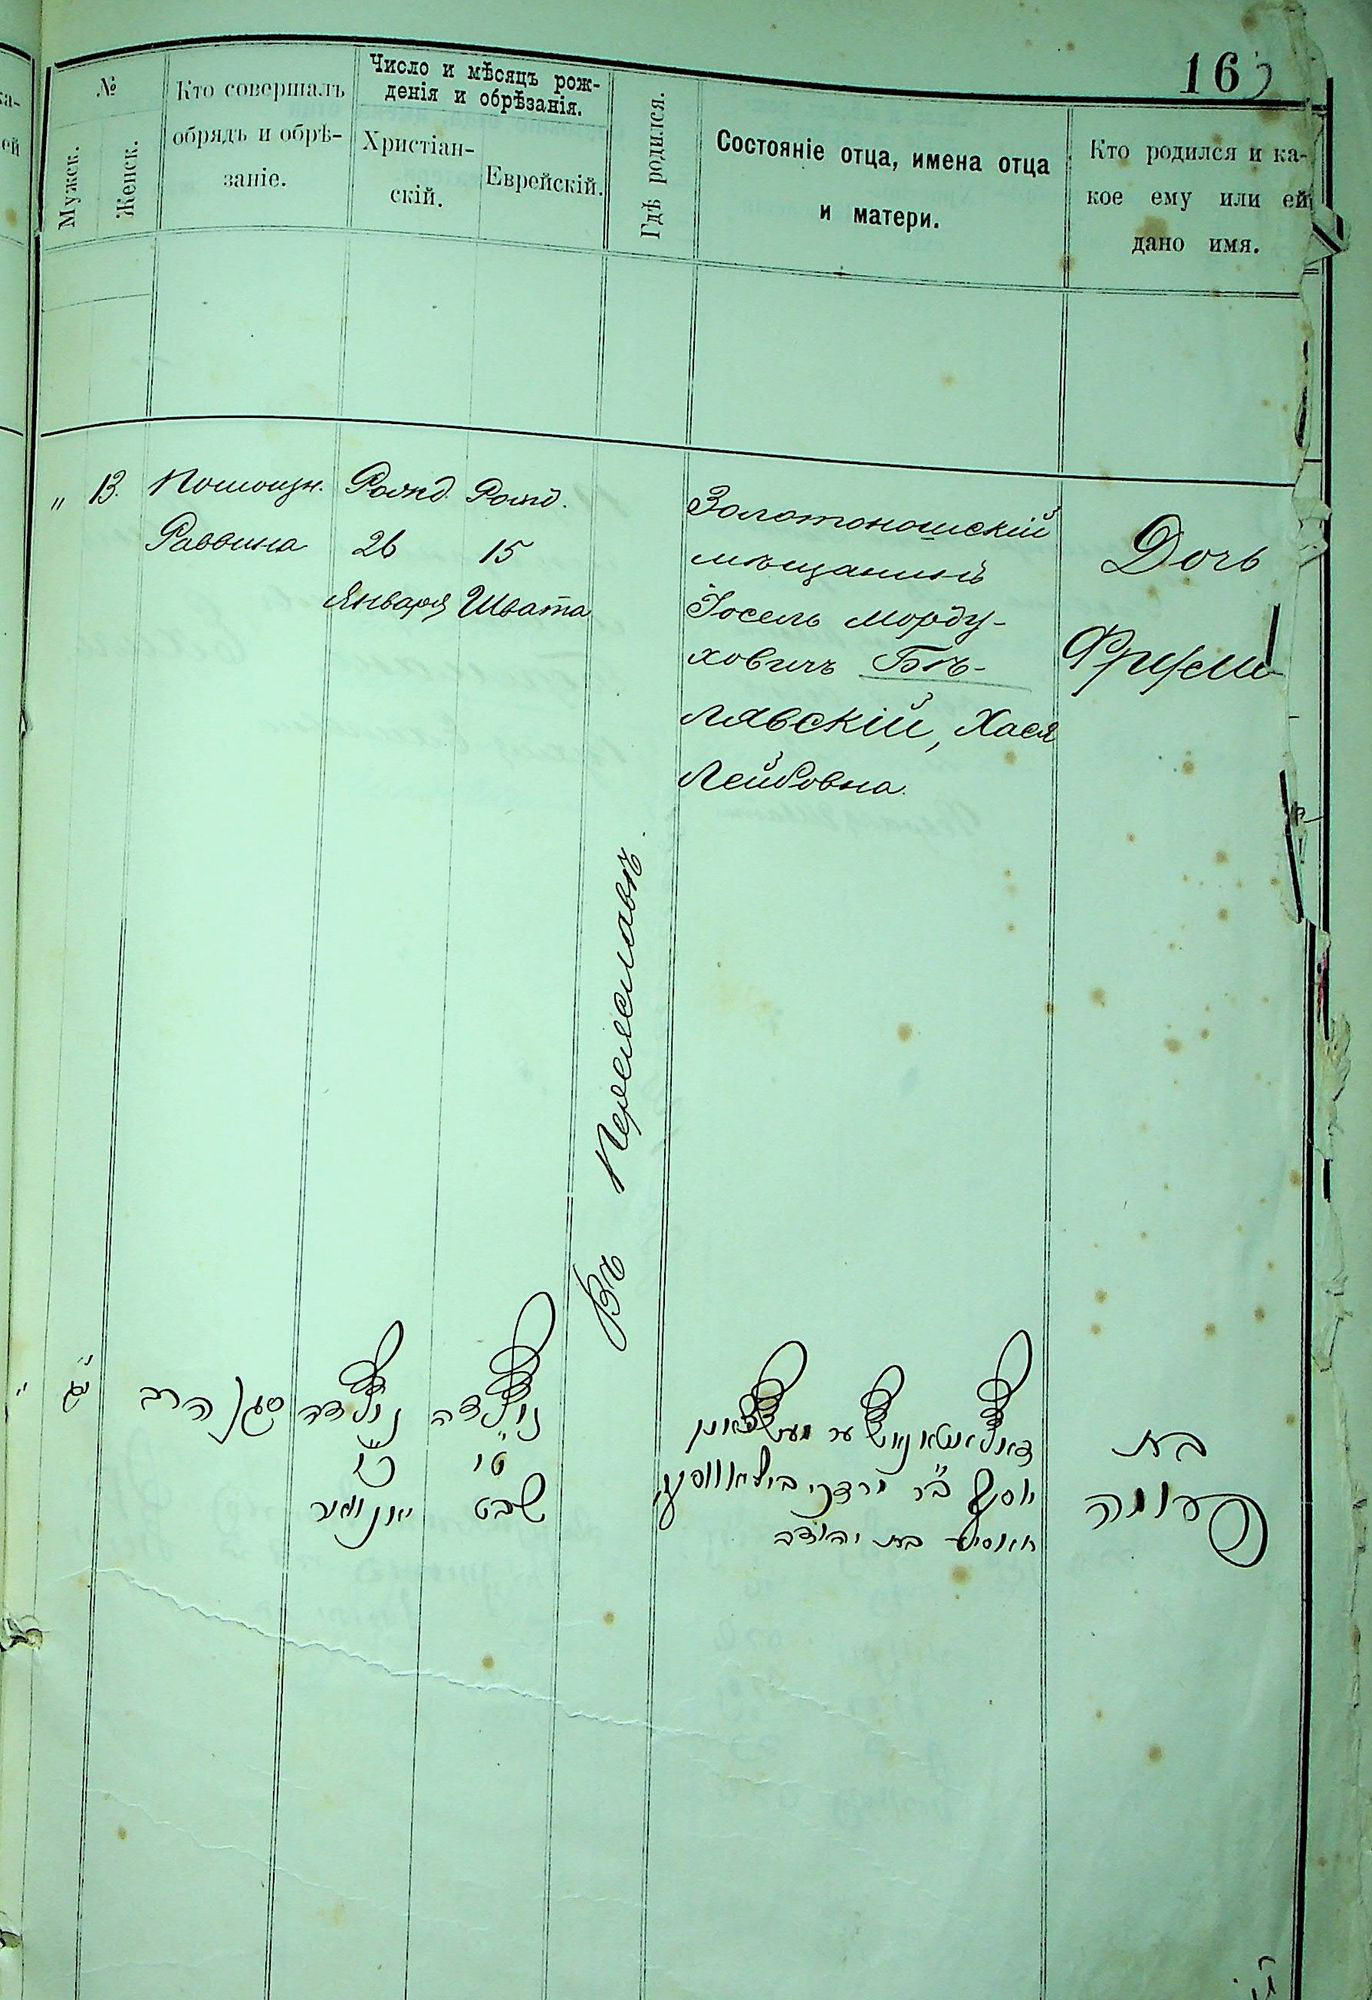 16
№
Мужск.
Женск.
Кто совершалъ
обрядъ и обрѣ-
заніе.
Число и мѣсяцъ рож-
денія и обрѣзанія.
Христіан-
скій.
Еврейскій.
Гдѣ родился.
Состояніе отца, имена отца
и матери.
Кто родился и ка-
кое ему или ей
дано имя.
" 13.
Помощн.
Раввина
Рожд.
26
Января
Рожд.
15
Швата
Въ Переяславѣ.
Золотоношскій
мѣщанинъ
Іосель Морду-
ховичъ Бѣ-
лявскій, Хася
Лейбовна.
Дочь
Фрума
סגן הרב
נולדה
כ"ו
יאנואר
נולדה
ט"ו
שבט
יוסף ב"ר
בת יהודה
בת
פרומה